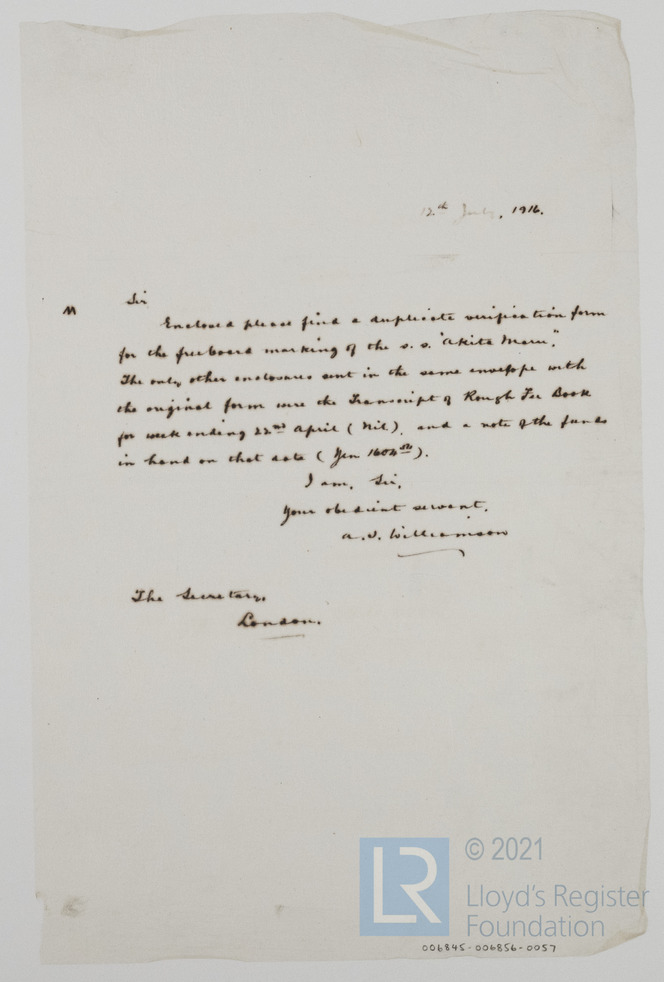 12th July, 1916.
M
Sir
Enclosed please find a duplicate verification form
for the freeboard marking of the s.s. "Akita Maru".
The only other enclosures sent in the same envelope with
the original form were the Transcript of Rough Fee Book
for week ending 22nd April (Nil), and a note of the funds
in hand on that date (Yen 1604
I am, Sir,
Your obedient servant,
A. J. Williamson
The Secretary,
London.
© 2021
LR
Lloyd's Register
Foundation
006845-006856-0057